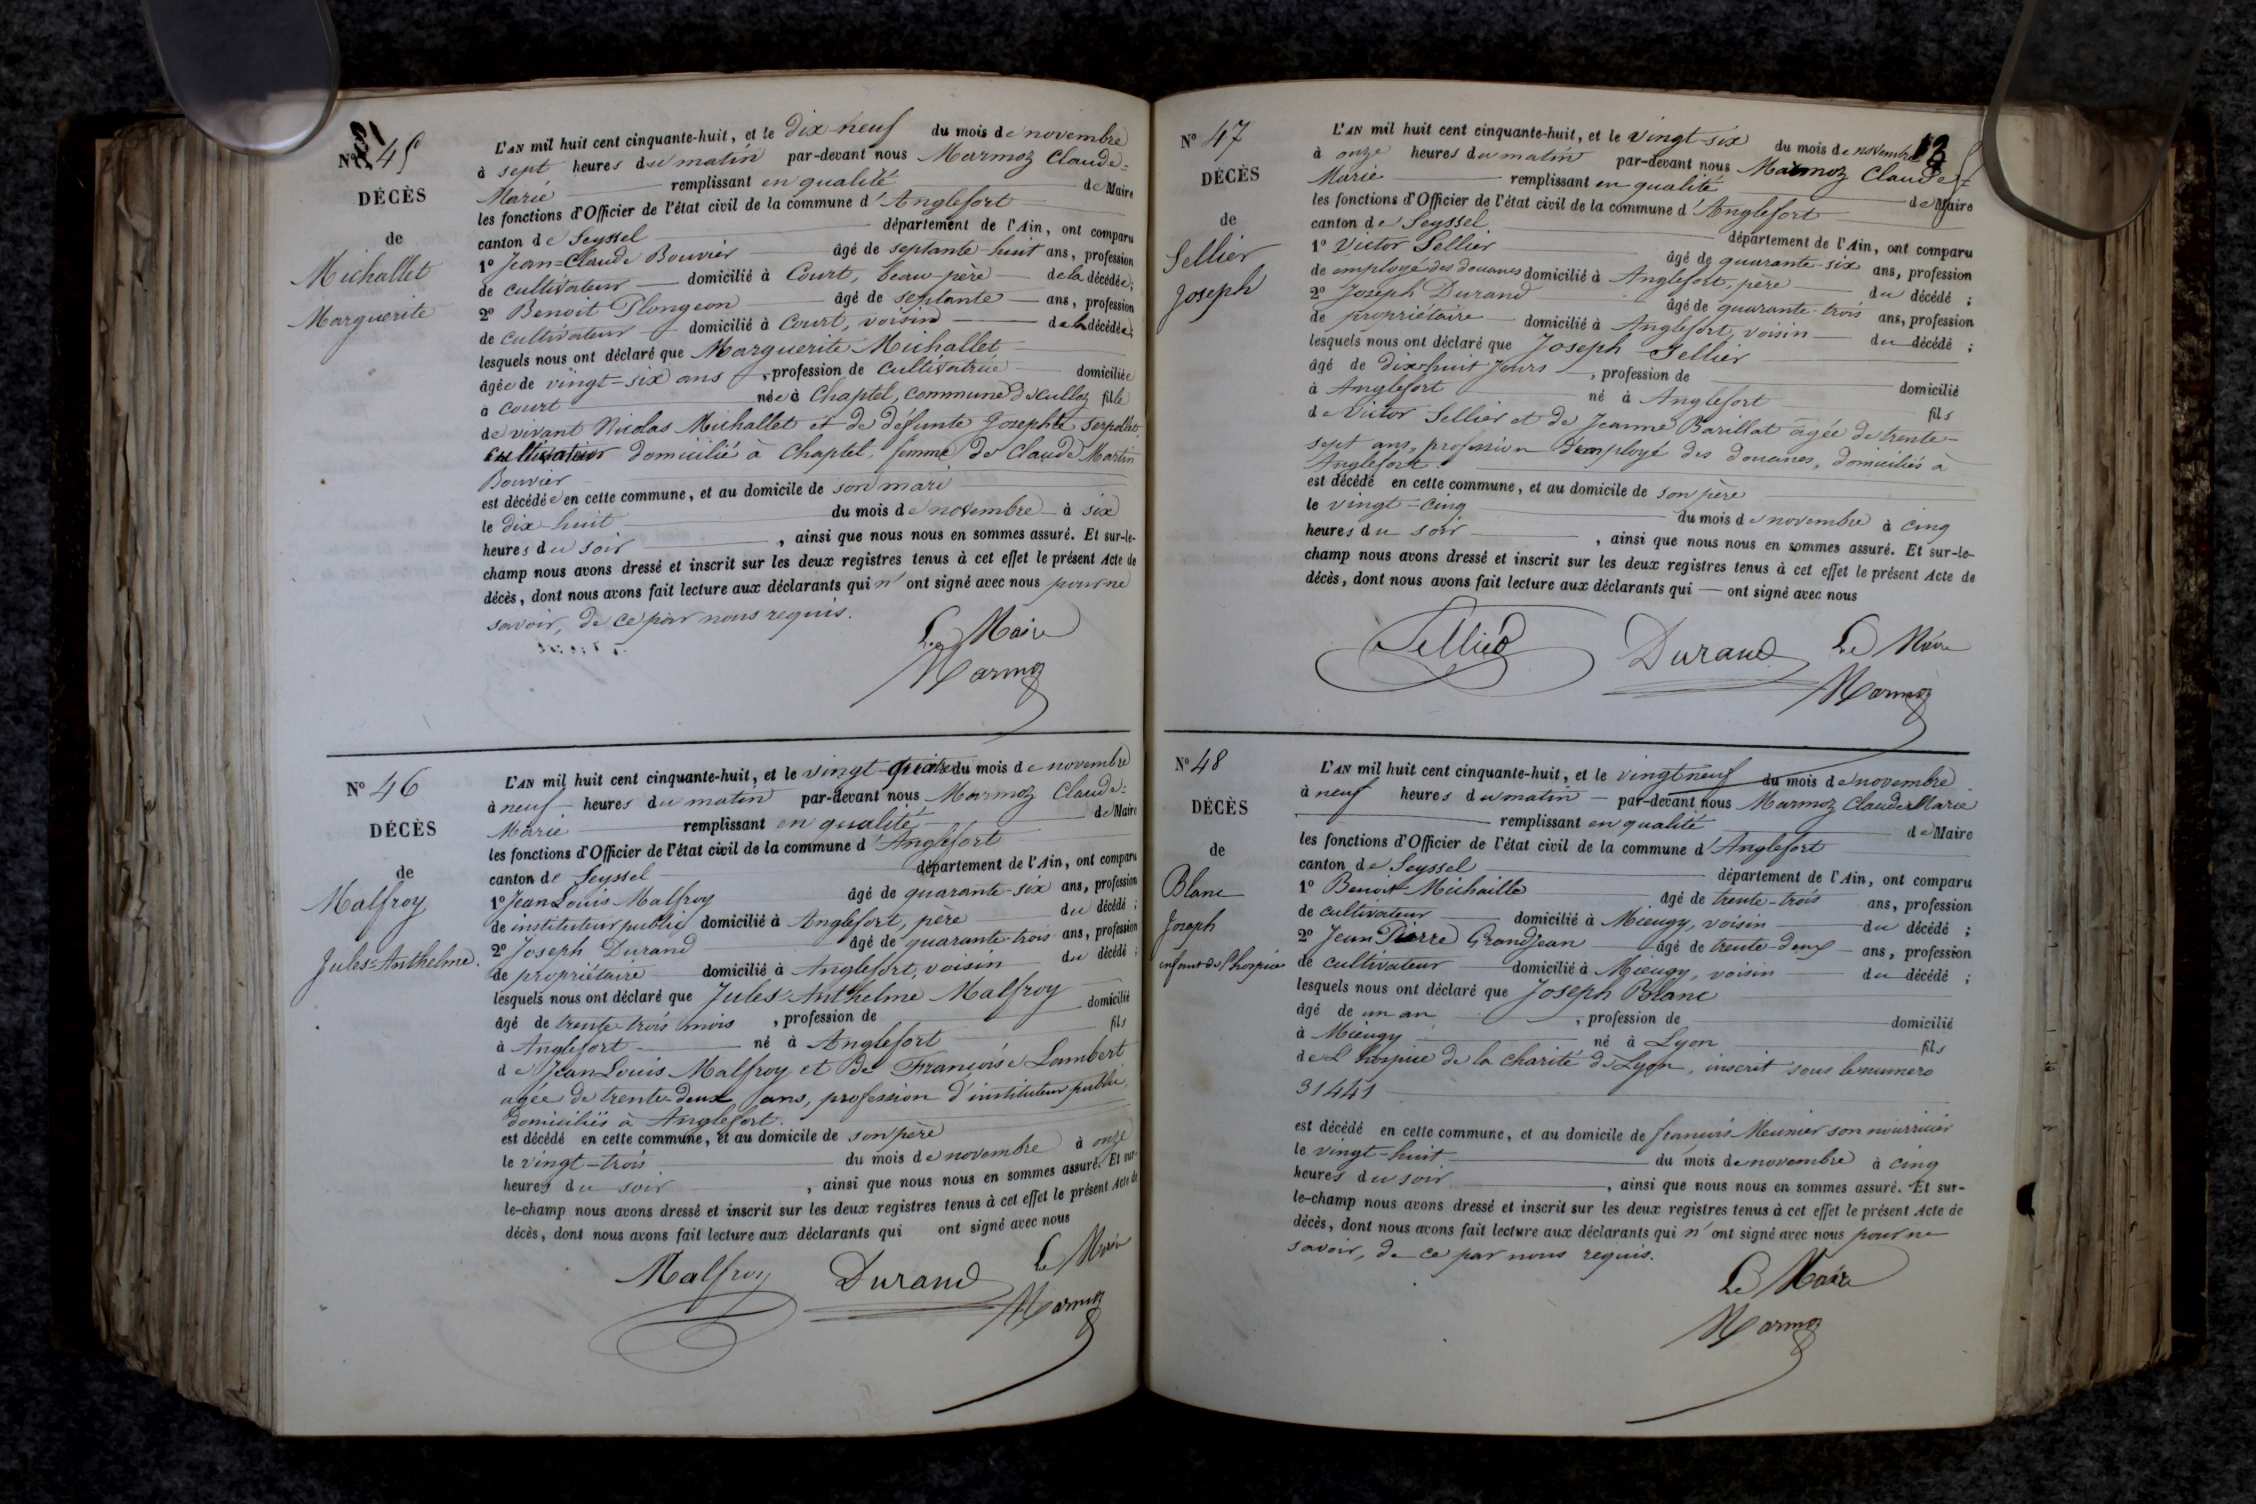 N° 45
DÉCÈS
de
Michallet
Marguerite
L'AN mil huit cent cinquante-huit, et le dix-neuf du mois de novembre
à sept heures du matin par-devant nous Marmoz Claude=
Marie remplissant en qualité de Maire
les fonctions d'Officier de l'état civil de la commune d'Anglefort
canton de Seyssel département de l'Ain, ont comparu
1° Jean=Claude Bouvier âgé de septante-huit ans, profession
de cultivateur domicilié à Court, beau-père de la décédée;
2° Benoit Plongeon âgé de septante ans, profession
de cultivateur domicilié à Court, voisin de la décédée;
lesquels nous ont déclaré que Marguerite Michallet
âgée de vingt=six ans, profession de cultivatrice domiciliée
à Court née à Chaptel, commune de Culloz fille
de vivant Nicolas Michallet et de défunte Josephte Serpollet
cultivateur domicilié à Chaptel, femme de Claude Martin
Bouvier
est décédée en cette commune, et au domicile de son mari
le dix-huit du mois de novembre à six
heures du soir, ainsi que nous nous en sommes assuré. Et sur-le-
champ nous avons dressé et inscrit sur les deux registres tenus à cet effet le présent Acte de
décès, dont nous avons fait lecture aux déclarants qui n'ont signé avec nous pour ne
savoir, de ce par nous requis.
Le Maire
Marmoz
N° 46
DÉCÈS
de
Malfroy
Jules=Anthelme.
L'AN mil huit cent cinquante-huit, et le vingt-quatre du mois de novembre
à neuf heures du matin par-devant nous Marmoz Claude=
Marie remplissant en qualité de Maire
les fonctions d'Officier de l'état civil de la commune d'Anglefort
canton de Seyssel département de l'Ain, ont comparu
1° Jean Louis Malfroy âgé de quarante-six ans, profession
de instituteur public domicilié à Anglefort, père du décédé;
2° Joseph Durand âgé de quarante-trois ans, profession
de propriétaire domicilié à Anglefort, voisin du décédé;
lesquels nous ont déclaré que Jules=Anthelme Malfroy
âgé de trente-trois mois, profession de domicilié
à Anglefort né à Anglefort fils
de Jean Louis Malfroy et de Françoise Lambert
agée de trente-deux ans, profession d'instituteur public,
domiciliés à Anglefort.
est décédé en cette commune, et au domicile de son père
le vingt-trois du mois de novembre à onze
heures du soir, ainsi que nous nous en sommes assuré. Et sur-
le-champ nous avons dressé et inscrit sur les deux registres tenus à cet effet le présent Acte de
décès, dont nous avons fait lecture aux déclarants qui ont signé avec nous
Malfroy Durand Le Maire
Marmoz
N° 47
DÉCÈS
de
Sellier
Joseph
L'AN mil huit cent cinquante-huit, et le vingt-six du mois de novembre
à onze heures du matin par-devant nous Marmoz Claude=
Marie remplissant en qualité de Maire
les fonctions d'Officier de l'état civil de la commune d'Anglefort
canton de Seyssel département de l'Ain, ont comparu
1° Victor Sellier âgé de quarante-six ans, profession
de employé des douanes domicilié à Anglefort, père du décédé;
2° Joseph Durand âgé de quarante-trois ans, profession
de propriétaire domicilié à Anglefort, voisin du décédé;
lesquels nous ont déclaré que Joseph Sellier
âgé de dix=huit jours, profession de domicilié
à Anglefort né à Anglefort fils
de Victor Sellier et de Jeanne Barillat agée de trente-
sept ans, profession d'employé des douanes, domiciliés à
Anglefort.
est décédé en cette commune, et au domicile de son père
le vingt=cinq du mois de novembre à cinq
heures du soir, ainsi que nous nous en sommes assuré. Et sur-le-
champ nous avons dressé et inscrit sur les deux registres tenus à cet effet le présent Acte de
décès, dont nous avons fait lecture aux déclarants qui ont signé avec nous
Sellier Durand Le Maire
Marmoz
N° 48
DÉCÈS
de
Blanc
Joseph
enfant de l'hospice
L'AN mil huit cent cinquante-huit, et le vingt neuf du mois de novembre
à neuf heures du matin par-devant nous Marmoz Claude Marie
remplissant en qualité de Maire
les fonctions d'Officier de l'état civil de la commune d'Anglefort
canton de Seyssel département de l'Ain, ont comparu
1° Benoit Michaille âgé de trente-trois ans, profession
de cultivateur domicilié à Mieugy, voisin du décédé;
2° Jean Pierre Grandjean âgé de trente-deux ans, profession
de cultivateur domicilié à Mieugy, voisin du décédé;
lesquels nous ont déclaré que Joseph Blanc
âgé de un an, profession de domicilié
à Mieugy né à Lyon fils
de L'hospice de la charité de Lyon, inscrit sous le numero
31441
est décédé en cette commune, et au domicile de françois Meunier son nourricier
le vingt-huit du mois de novembre à cinq
heures du soir, ainsi que nous nous en sommes assuré. Et sur-
le-champ nous avons dressé et inscrit sur les deux registres tenus à cet effet le présent Acte de
décès, dont nous avons fait lecture aux déclarants qui n'ont signé avec nous pour ne
savoir, de ce par nous requis.
Le Maire
Marmoz